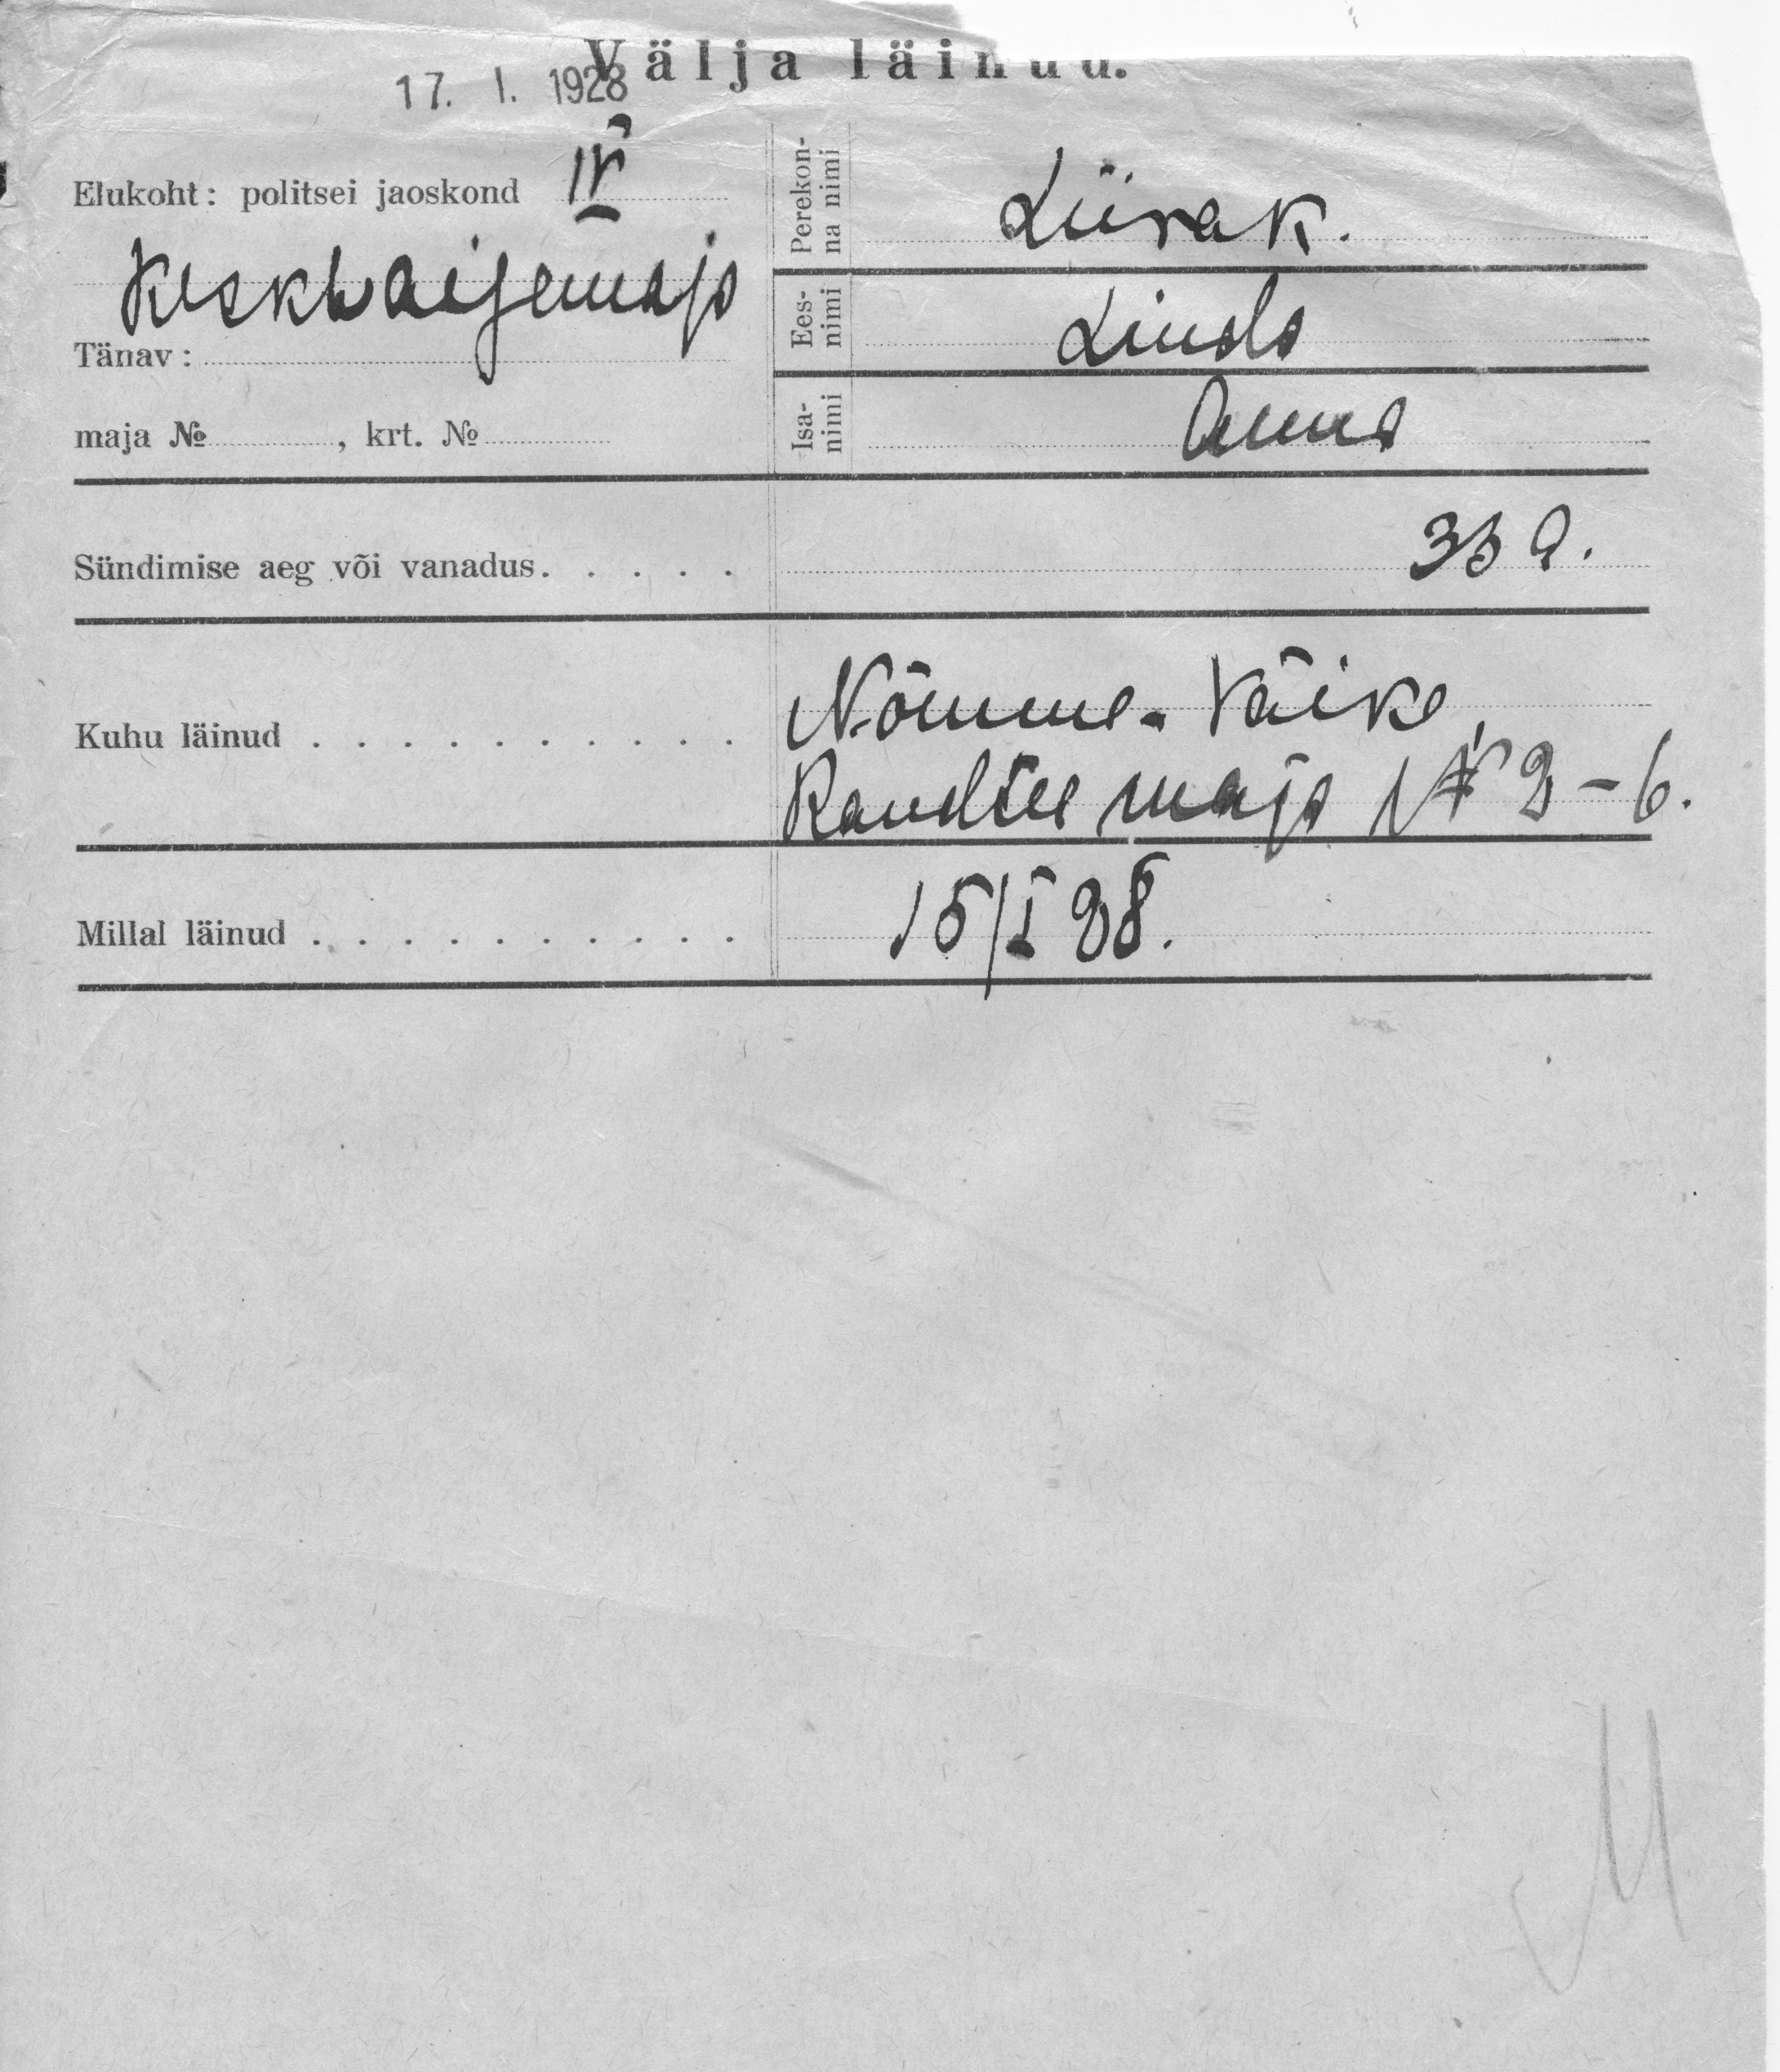 Välja läinud.
17. I. 1928
Elukoht: politsei jaoskond IV
Keskhaigemaja
Tänav:
maja №, krt. №
Perekon-
na nimi
Liirak.
Ees-
nimi
Linda
Isa-
nimi
Anna
Sündimise aeg või vanadus. . . . . 33 a.
Kuhu läinud . . . . . . . . . . Nõmme - Väike,
Raudtee maja № 2 - 6.
Millal läinud . . . . . . . . . . 15/I 28.